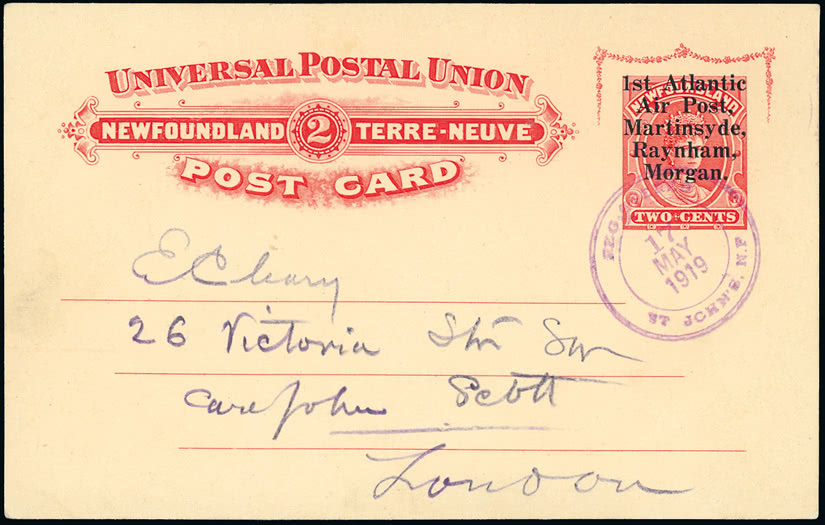 UNIVERSAL POSTAL UNION
NEWFOUNDLAND 2 TERRE-NEUVE
POST CARD
1st Atlantic
Air Post,
Martinsyde,
Raynham,
Morgan.
NEWFOUNDLAND
TWO CENTS
17
MAY
1919
ST JOHN'S, N.F
E Cleary
26 Victoria Str Sw
Care John Scott
London